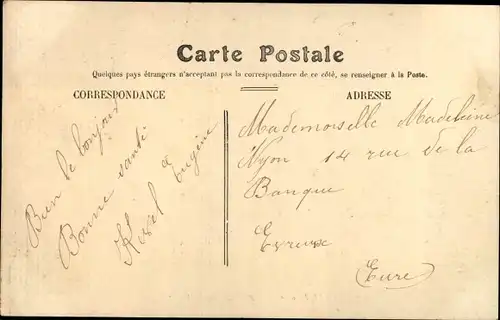 Carte Postale
Quelques pays étrangers n'acceptant pas la correspondance de ce côté, se renseigner à la Poste.
CORRESPONDANCE
ADRESSE
Bien le bonjour
Bonne santé
à Eugène
Mademoiselle Madeleine
Nyon 14 rue de la
Banque
Evreux
(Eure)